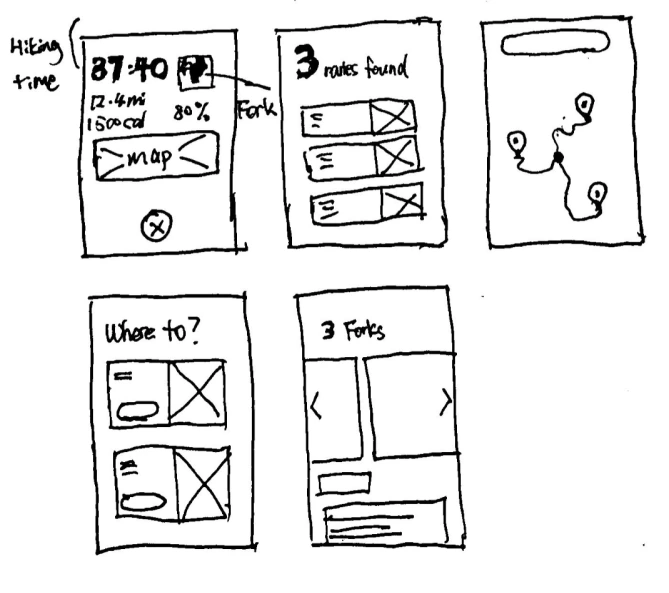 Hiking
time
37:40
12.4mi
1500cal
80%
Fork
map
3 routes found
Where to?
3 Forks